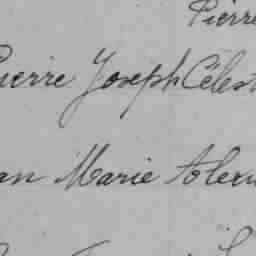 Pierre
Pierre Joseph Célest
an Marie Alex